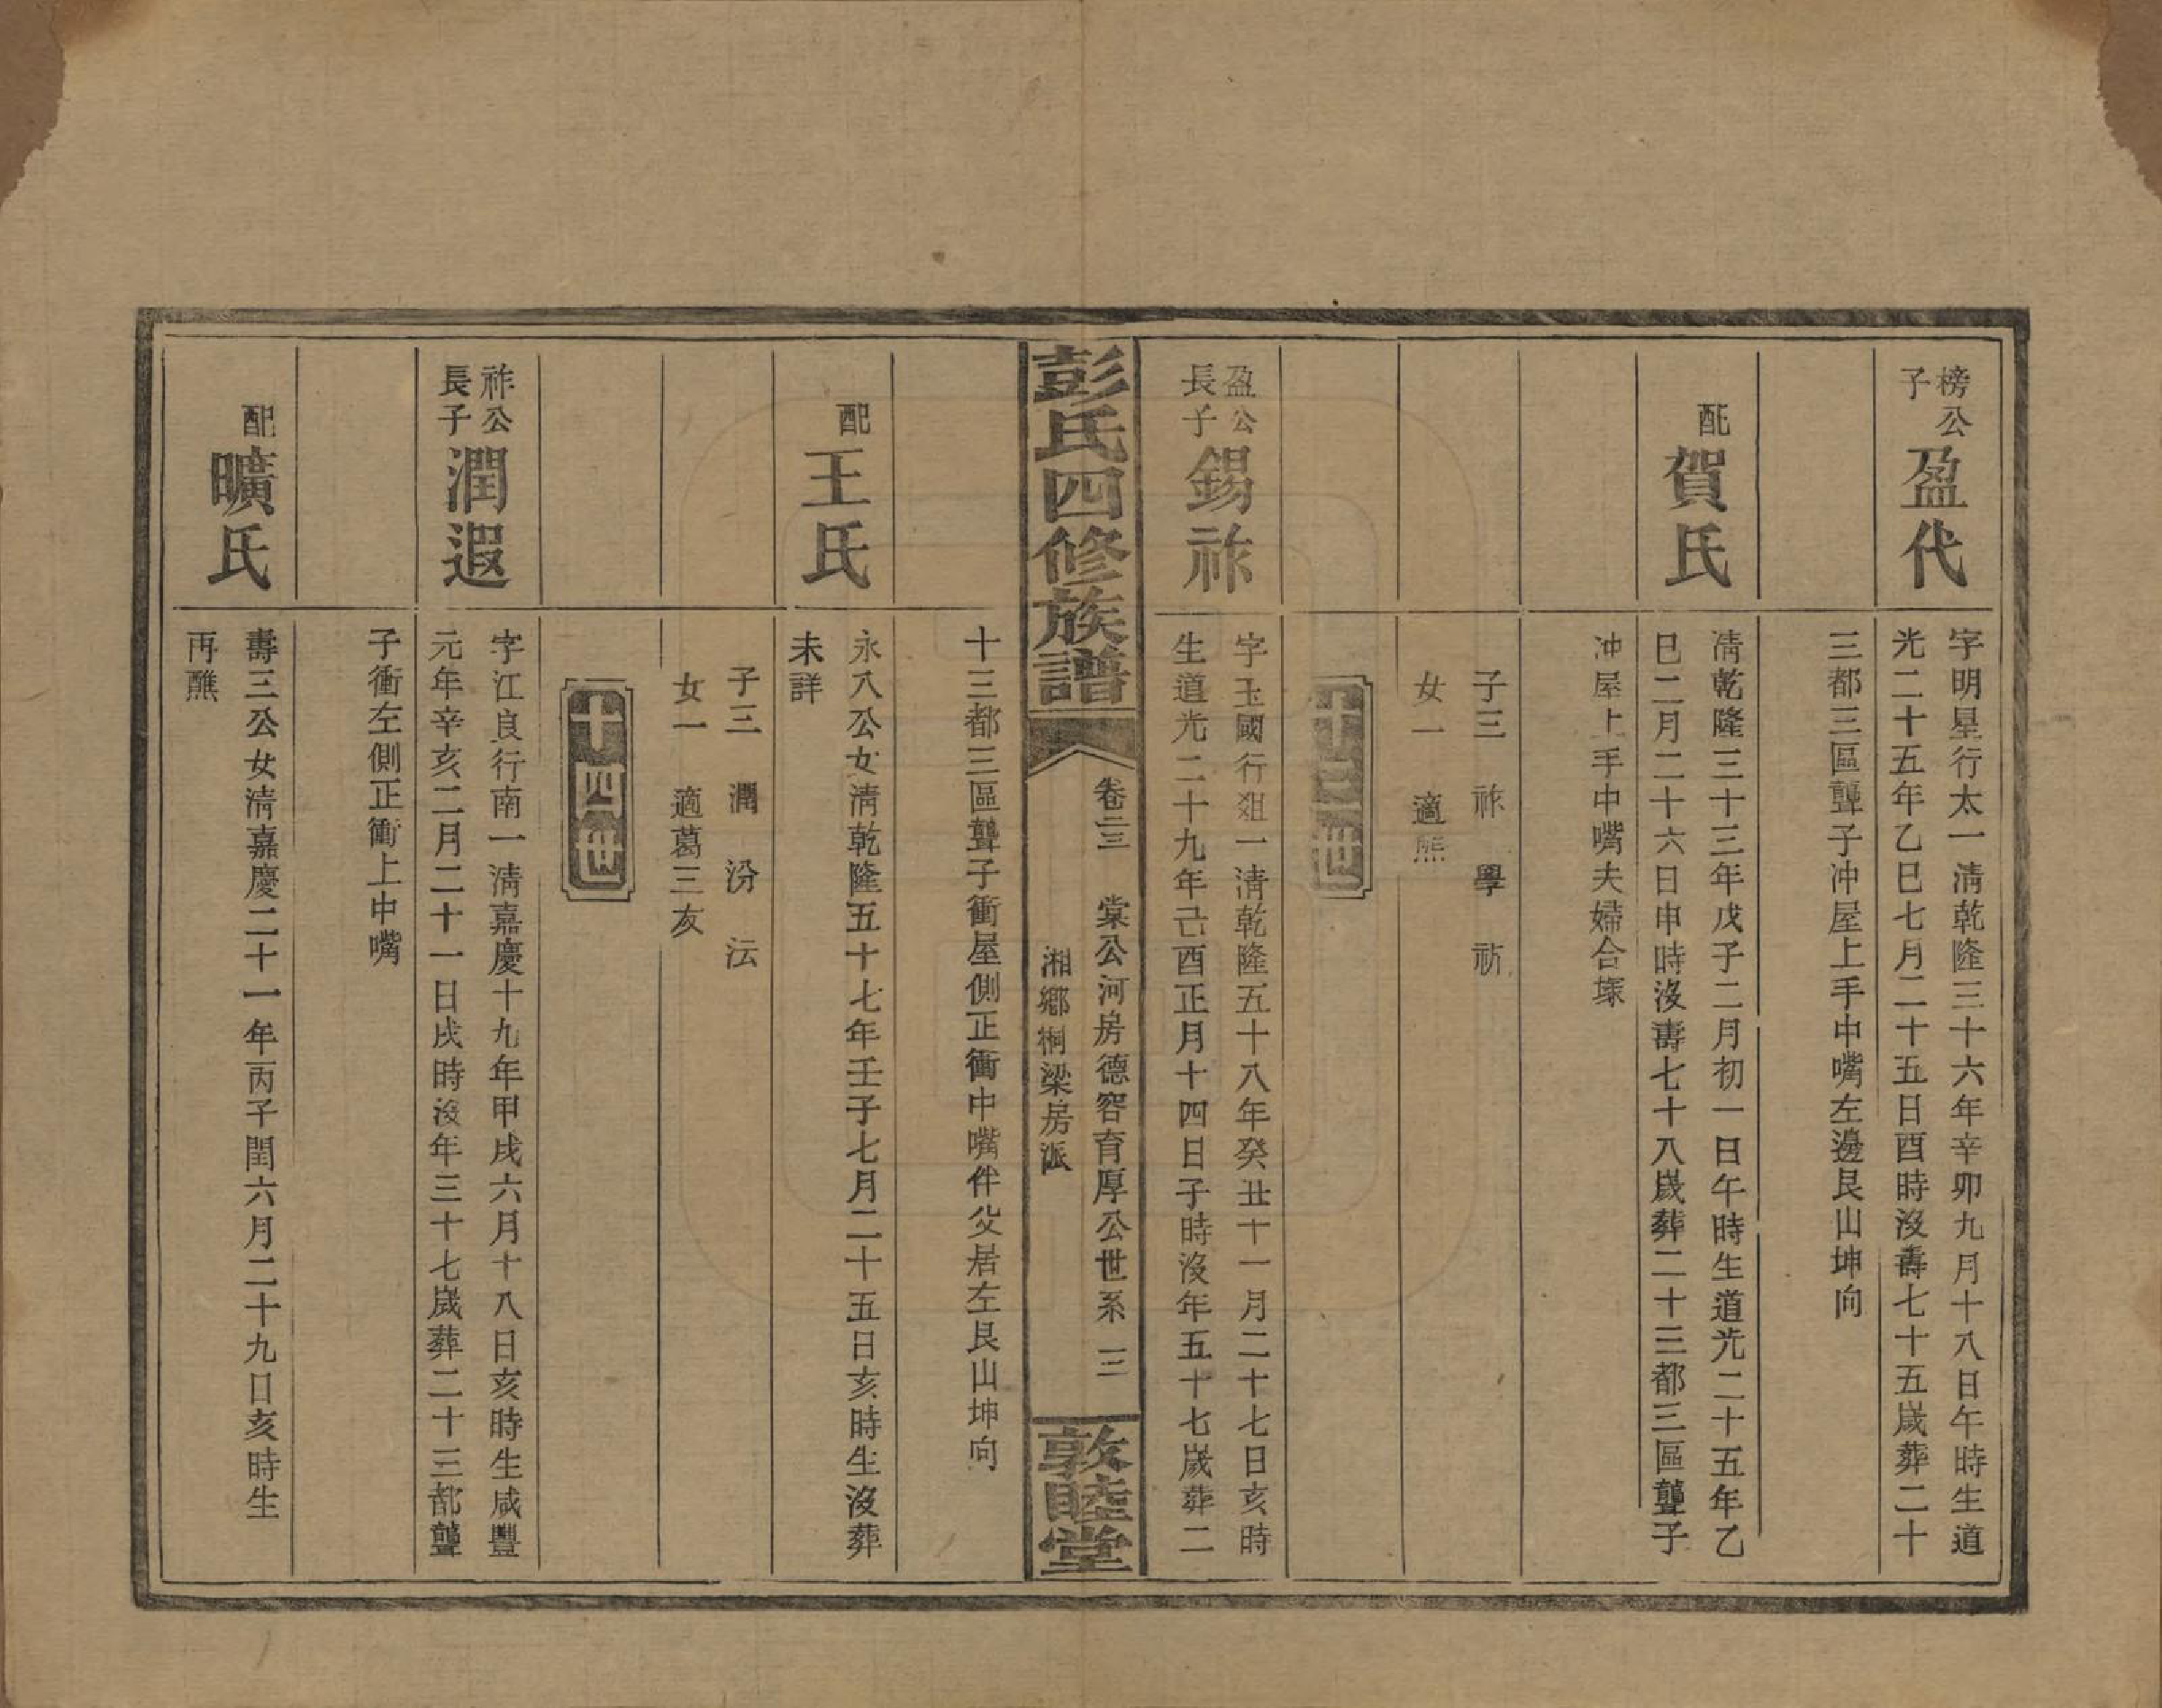 榜公
子
盈代
字明星行太一清乾隆三十六年辛卯九月十八日午時生道
光二十五年乙巳七月二十五日酉時沒壽七十五歲葬二十
三都三區聾子冲屋上手中嘴左邊艮山坤向
配
賀氏
清乾隆三十三年戊子二月初一日午時生道光二十五年乙
巳二月二十六日申時沒壽七十八歲葬二十三都三區聾子
冲屋上手中嘴夫婦合塚
子三 祚 學 祈
女一 適熊
十三世
盈公
長子
錫祚
字玉國行姐一清乾隆五十八年癸丑十一月二十七日亥時
生道光二十九年己酉正月十四日子時沒年五十七歲葬二
彭氏四修族譜
卷二三 棠公河房德容育厚公世系 三
湘鄉桐梁房派
敦睦堂
十三都三區聾子衝屋側正衝中嘴伴父居左艮山坤向
配
王氏
永八公女清乾隆五十七年壬子七月二十五日亥時生沒葬
未詳
子三 潤 汾 沄
女一 適葛三友
十四世
祚公
長子
潤遐
字江良行南一清嘉慶十九年甲戌六月十八日亥時生咸豐
元年辛亥二月二十一日戌時沒年三十七歲葬二十三都聾
子衝左側正衝上中嘴
配
曠氏
壽三公女清嘉慶二十一年丙子閏六月二十九日亥時生
再醮